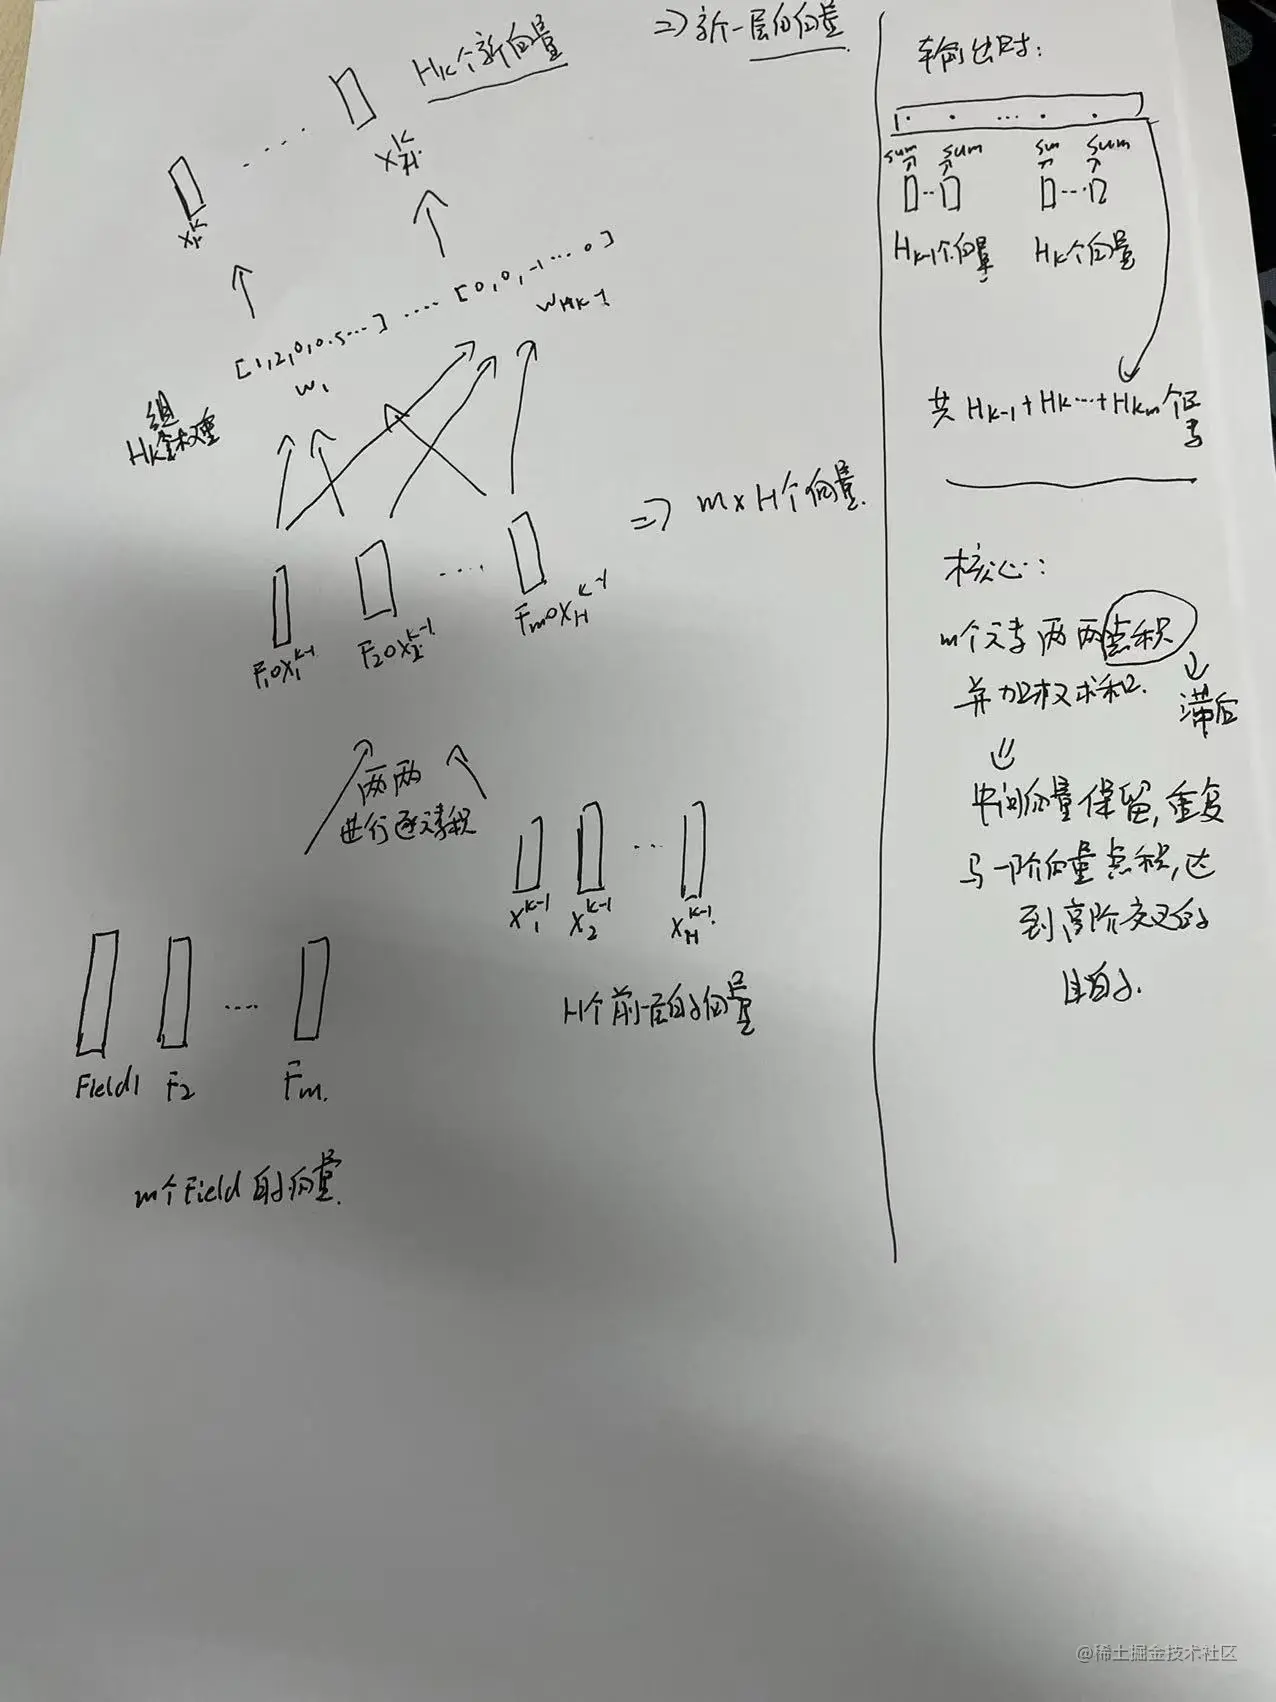 Hk个新向量
⇒ 新一层的向量
X1^K
X^K
[1,2,0,0.5…] …. [0,0,-1…0]
W1
WHk-1
Hk组权重
⇒ m×H个向量
F1∘X1^k-1
F2∘X2^k-1
Fm∘XH^k-1
两两
进行逐元素积
X1^k-1
X2^k-1
XH^k-1
H个前一层的向量
Field1
F2
Fm
m个Field的向量
输出时:
sum
sum
sum
sum
Hk-1个向量
Hk个向量
共Hk-1+Hk…+Hkm个元素
核心:
m个元素两两点积
并加权求和.
滞后
中间向量保留,重复
与一阶向量点积,达
到高阶交叉的
目的.
@稀土掘金技术社区